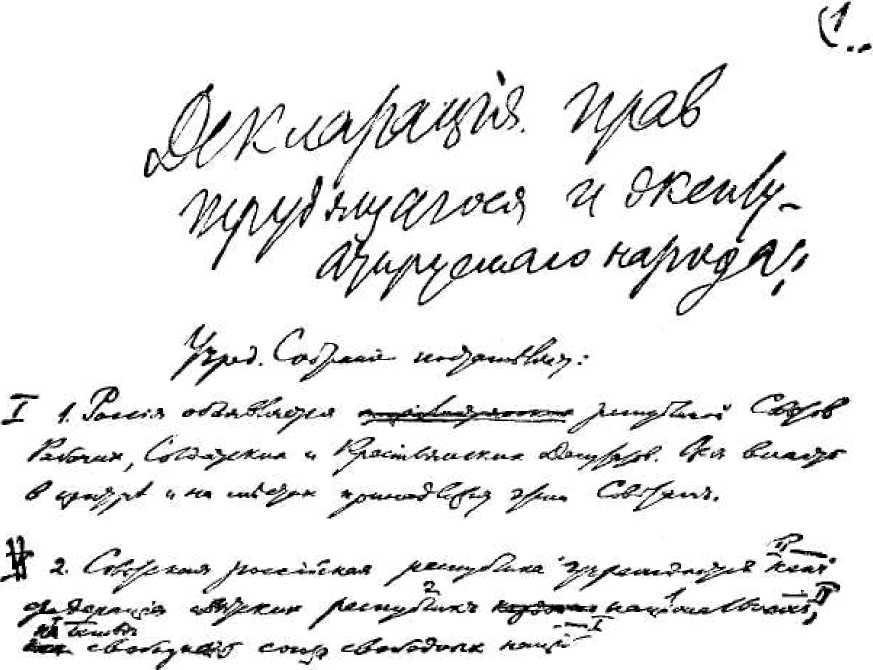 (1..
Декларація прав
трудящагося и эксплу-
атируемаго народа.
Учред. Собраніе постановляет:
I 1. Россія объявляется республикой Совѣтов
Рабочих, Солдатских и Крестьянских Депутатов. Вся власть
в центрѣ и на мѣстах принадлежит этим Совѣтам.
II 2. Совѣтская россійская республика учреждается как
федерація совѣтских республик національных,
свободный союз свободных націй